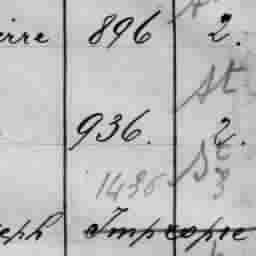 erre 896 2.
St
936. 2.
1436 St 3
eph Impropre